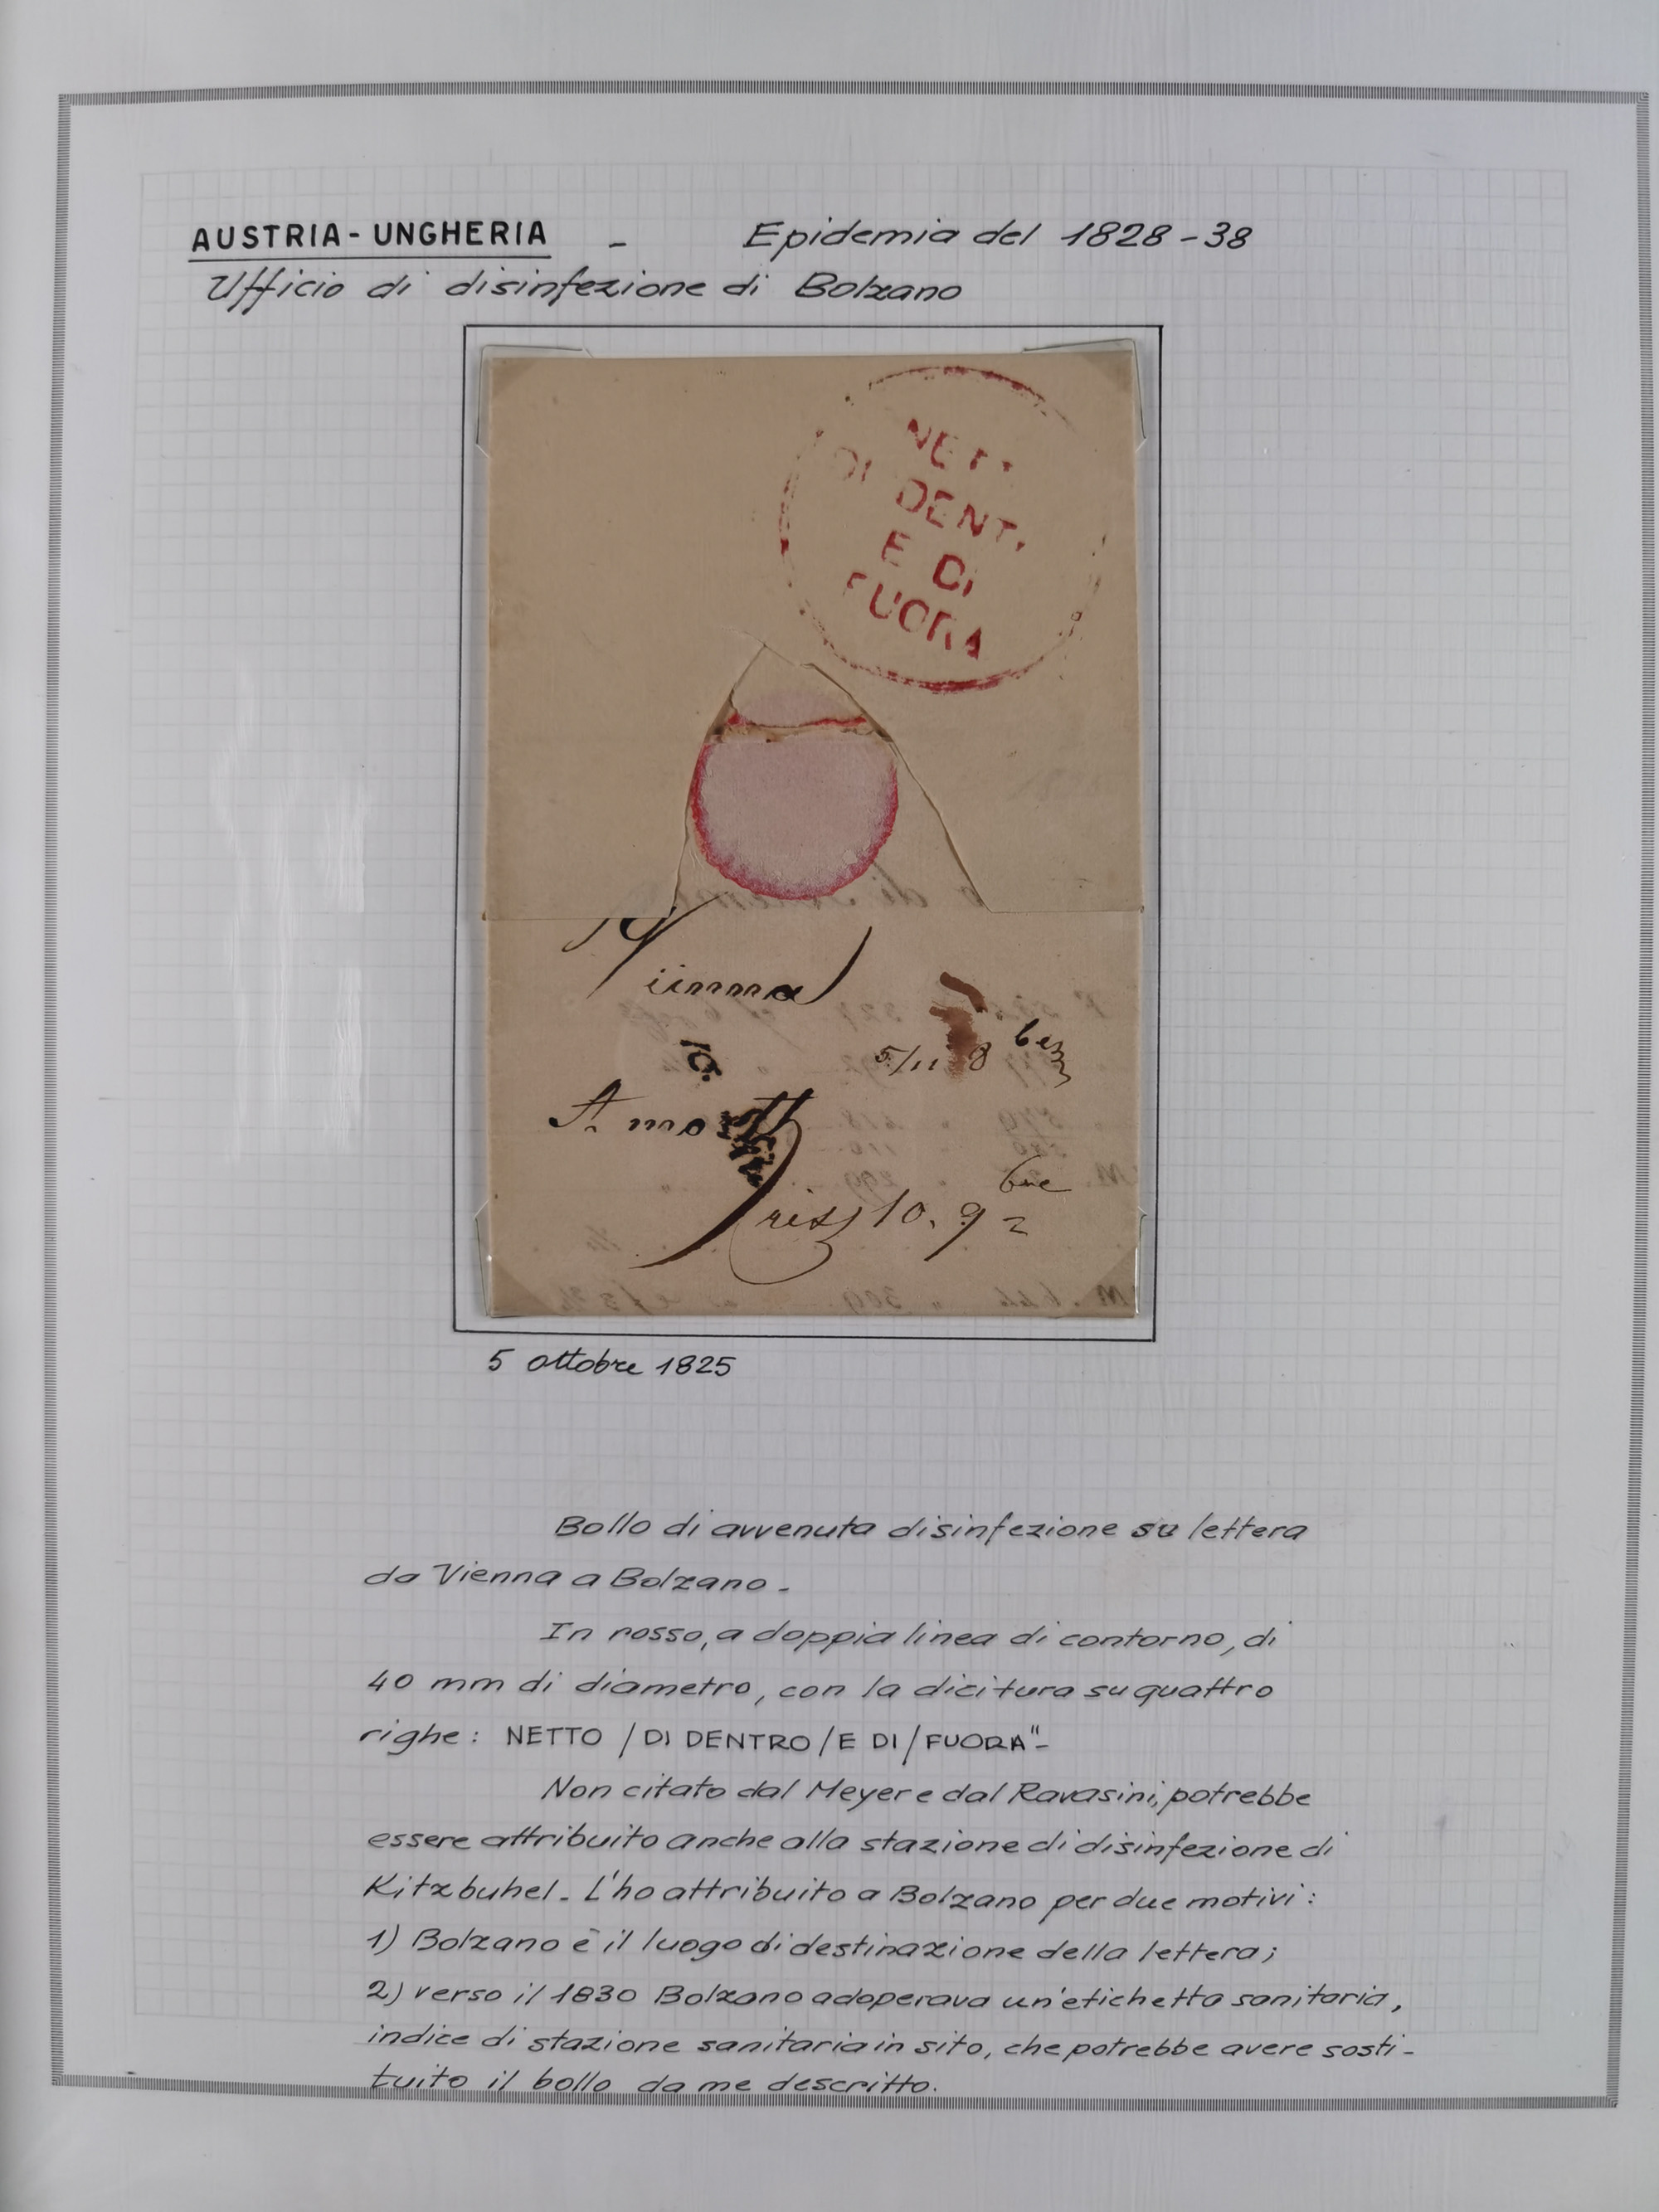 AUSTRIA - UNGHERIA - Epidemia del 1828-38
Ufficio di disinfezione di Bolzano
NETT
DI DENT.
E DI
FUORA
5/11 8
A. mo
10. 9
5 ottobre 1825
Bollo di avvenuta disinfezione su lettera
da Vienna a Bolzano -
In rosso, a doppia linea di contorno, di
40 mm di diametro, con la dicitura su quattro
righe: NETTO / DI DENTRO / E DI / FUORA" -
Non citato dal Meyer e dal Ravasini, potrebbe
essere attribuito anche alla stazione di disinfezione di
Kitzbuhel - L'ho attribuito a Bolzano per due motivi:
1) Bolzano è il luogo di destinazione della lettera;
2) verso il 1830 Bolzano adoperava un'etichetta sanitaria,
indice di stazione sanitaria in sito, che potrebbe avere sosti-
tuito il bollo da me descritto.